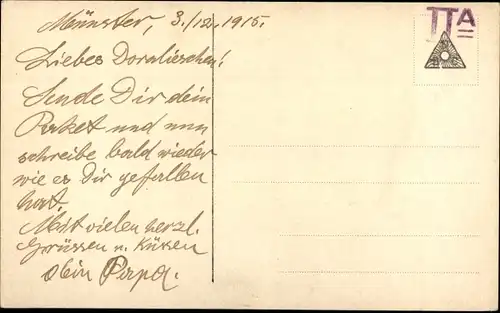 Münster, 3./12. 1915.
Liebes Doralieschen!
Sende Dir dein
Paket und nun
schreibe bald wieder
wie es Dir gefallen
hat.
Mit vielen herzl.
Grüssen u. Küssen
Dein Papa.
IIA